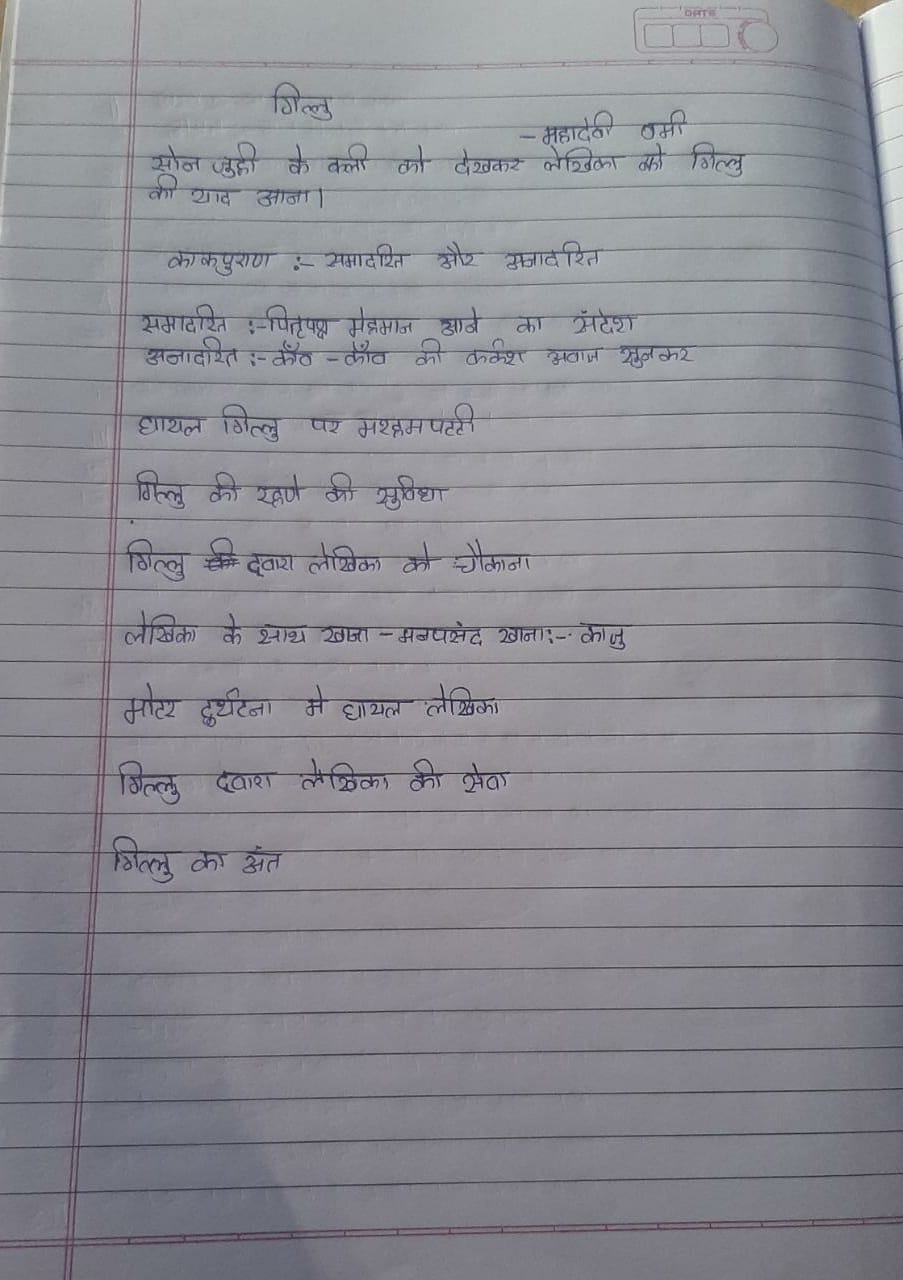 DATE
गिल्लु
-महादेवी वर्मा
सोन जुही के कली को देखकर लेखिका को गिल्लु
की याद आना।
काकपुराण :- समादरित और अनादरित
समादरित :-पितृपक्ष मेहमान आने का संदेश
अनादरित :- काँव - काँव की कर्कश अवाज सुनकर
घायल गिल्लु पर मरहमपटटी
गिल्लु की रहणे की सुविधा
गिल्लु द्वारा लेखिका को चौकाना
लेखिका के साथ खाना - मनपसंद खाना:- काजु
मोटर दुर्घटना मे घायल लेखिका
गिल्लु दवारा लेखिका की सेवा
गिल्लु का अंत